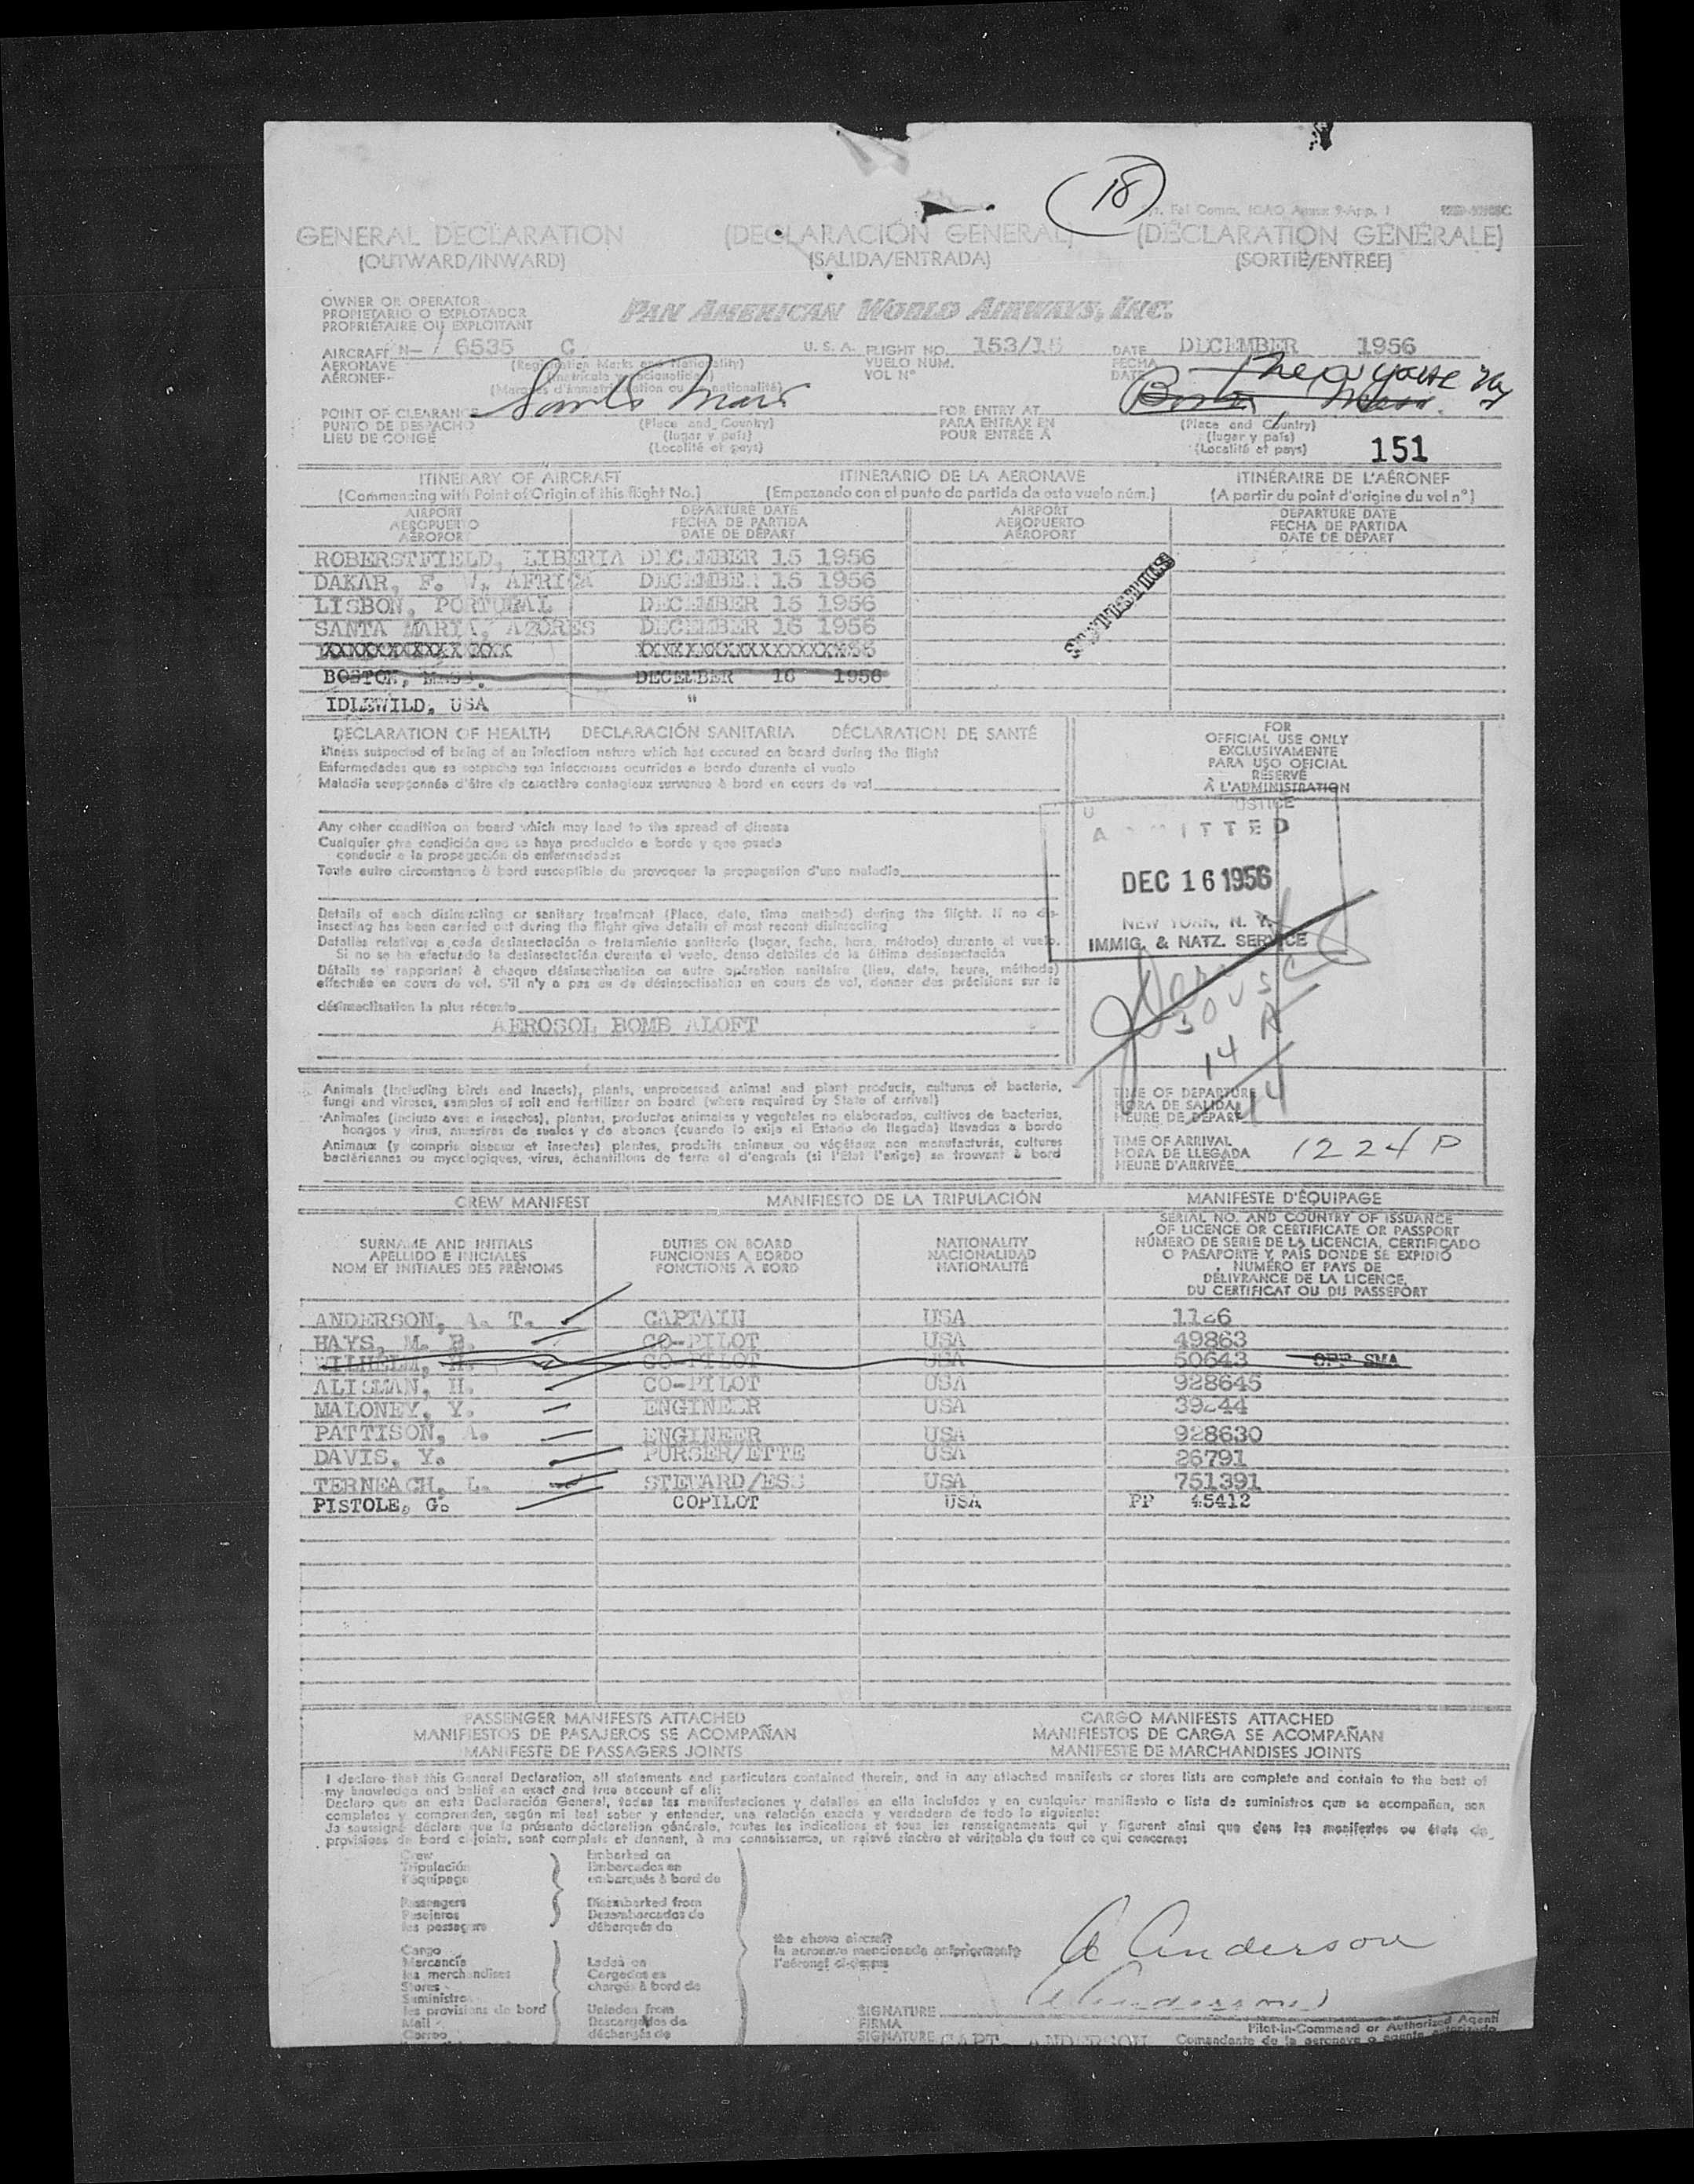 18
GENERAL DECLARATION (DECLARACIÓN GENERAL) (DÉCLARATION GÉNÉRALE)
(OUTWARD/INWARD) (SALIDA/ENTRADA) (SORTIE/ENTRÉE)
OWNER OR OPERATOR
PROPIETARIO O EXPLOTADOR
PROPRIÉTAIRE OU EXPLOITANT
PAN AMERICAN WORLD AIRWAYS, INC.
AIRCRAFT N- 6535 C U. S. A. FLIGHT NO. 153/15 DATE DECEMBER 1956
AERONAVE (Registration Marks and Nationality) VUELO NUM. FECHA
AÉRONEF VOL N° DATE
New York NY
POINT OF CLEARANCE Santa Maria FOR ENTRY AT Boston, Mass.
PUNTO DE DESPACHO (Place and Country) PARA ENTRAR EN (Place and Country)
LIEU DE CONGÉ (lugar y país) POUR ENTRÉE A (lugar y país)
(Localité et pays) (Localité et pays) 151
ITINERARY OF AIRCRAFT ITINERARIO DE LA AERONAVE ITINÉRAIRE DE L'AÉRONEF
(Commencing with Point of Origin of this flight No.) (Empezando con el punto de partida de este vuelo núm.) (A partir du point d'origine du vol n°)
AIRPORT DEPARTURE DATE AIRPORT DEPARTURE DATE
AEROPUERTO FECHA DE PARTIDA AEROPUERTO FECHA DE PARTIDA
AÉROPORT DATE DE DÉPART AÉROPORT DATE DE DÉPART
ROBERSTFIELD, LIBERIA DECEMBER 15 1956
DAKAR, F. W. AFRICA DECEMBER 15 1956
LISBON, PORTUGAL DECEMBER 15 1956
SANTA MARIA, AZORES DECEMBER 16 1956
BOSTON, MASS. DECEMBER 16 1956
IDLEWILD, USA "
DECLARATION OF HEALTH DECLARACIÓN SANITARIA DÉCLARATION DE SANTÉ
Illness suspected of being of an infectious nature which has occured on board during the flight
Enfermedades que se sospecha sean infecciosas ocurridas a bordo durante el vuelo
Maladie soupçonnée d'être de caractère contagieux survenue à bord en cours de vol
FOR
OFFICIAL USE ONLY
EXCLUSIVAMENTE
PARA USO OFICIAL
RÉSERVÉ
À L'ADMINISTRATION
Any other condition on board which may lead to the spread of disease
Cualquier otra condición que se haya producido a bordo y que pueda
conducir a la propagación de enfermedades
Toute autre circonstance à bord susceptible de provoquer la propagation d'une maladie
JUSTICE
ADMITTED
DEC 16 1956
NEW YORK, N. Y.
IMMIG. & NATZ. SERVICE
Details of each disinsecting or sanitary treatment (Place, date, time method) during the flight. If no dis-
insecting has been carried out during the flight give details of most recent disinsecting
Detalles relativos a cada desinsectación o tratamiento sanitario (lugar, fecha, hora, método) durante el vuelo.
Si no se ha efectuado la desinsectación durante el vuelo, dense detalles de la última desinsectación
Détails se rapportant à chaque désinsectisation ou autre opération sanitaire (lieu, date, heure, méthode)
effectuée en cours de vol. S'il n'y a pas eu de désinsectisation en cours de vol, donner des précisions sur la
désinsectisation la plus récente
AEROSOL BOMB ALOFT
30 USC
14 A
44
Animals (including birds and insects), plants, unprocessed animal and plant products, cultures of bacteria,
fungi and viruses, samples of soil and fertilizer on board (where required by State of arrival)
Animales (incluso aves e insectos), plantas, productos animales y vegetales no elaborados, cultivos de bacterias,
hongos y virus, muestras de suelos y de abonos (cuando lo exija el Estado de llegada) llevados a bordo
Animaux (y compris oiseaux et insectes) plantes, produits animaux ou végétaux non manufacturés, cultures
bactériennes ou mycologiques, virus, échantillons de terre et d'engrais (si l'État l'exige) se trouvant à bord
TIME OF DEPARTURE
HORA DE SALIDA
HEURE DE DÉPART
TIME OF ARRIVAL
HORA DE LLEGADA 1224 P
HEURE D'ARRIVÉE
CREW MANIFEST MANIFIESTO DE LA TRIPULACIÓN MANIFESTE D'ÉQUIPAGE
SURNAME AND INITIALS DUTIES ON BOARD NATIONALITY SERIAL NO. AND COUNTRY OF ISSUANCE
APELLIDO E INICIALES FUNCIONES A BORDO NACIONALIDAD OF LICENCE OR CERTIFICATE OR PASSPORT
NOM ET INITIALES DES PRÉNOMS FONCTIONS A BORD NATIONALITÉ NÚMERO DE SERIE DE LA LICENCIA, CERTIFICADO
O PASAPORTE Y PAÍS DONDE SE EXPIDIÓ
NUMÉRO ET PAYS DE
DÉLIVRANCE DE LA LICENCE,
DU CERTIFICAT OU DU PASSEPORT
ANDERSON, A. T. CAPTAIN USA
HAYS, M. B. CO-PILOT USA 49863
WILHELM, H. CO-PILOT USA 50643 OFF SMA
ALTSMAN, H. CO-PILOT USA 928645
MALONEY, Y. ENGINEER USA
PATTISON, A. ENGINEER USA 928630
DAVIS, Y. PURSER/ETTE USA 26791
TERNEACH, L. STEWARD/ESS USA 751391
PISTOLE, G. COPILOT USA PP 45412
PASSENGER MANIFESTS ATTACHED CARGO MANIFESTS ATTACHED
MANIFIESTOS DE PASAJEROS SE ACOMPAÑAN MANIFIESTOS DE CARGA SE ACOMPAÑAN
MANIFESTE DE PASSAGERS JOINTS MANIFESTE DE MARCHANDISES JOINTS
I declare that this General Declaration, all statements and particulars contained therein, and in any attached manifests or stores lists are complete and contain to the best of
my knowledge and belief an exact and true account of all:
Declaro que en esta Declaración General, todas las manifestaciones y detalles en ella incluidos y en cualquier manifiesto o lista de suministros que se acompañen, son
completos y comprenden, según mi leal saber y entender, una relación exacta y verdadera de todo lo siguiente:
Je soussigné déclare que la présente déclaration générale, toutes les indications et tous les renseignements qui y figurent ainsi que dans les manifestes ou états de
provisions de bord ci-joints, sont complets et donnent, à ma connaissance, un relevé sincère et véritable de tout ce qui concerne:
Crew Embarked on
Tripulación Embarcados en
l'équipage embarqués à bord de
Passengers Disembarked from
Pasajeros Desembarcados de
les passagers débarqués de
Cargo the above aircraft
Mercancía Laden on la aeronave mencionada anteriormente
les marchandises Cargados en l'aéronef ci-dessus
Stores chargés à bord de
Suministros
les provisions de bord Unladen from
Mail Descargados de
Correo déchargés de
A Anderson
(A Anderson)
SIGNATURE
FIRMA Pilot-in-Command or Authorized Agent
SIGNATURE CAPT. ANDERSON Comandante de la aeronave o agente autorizado